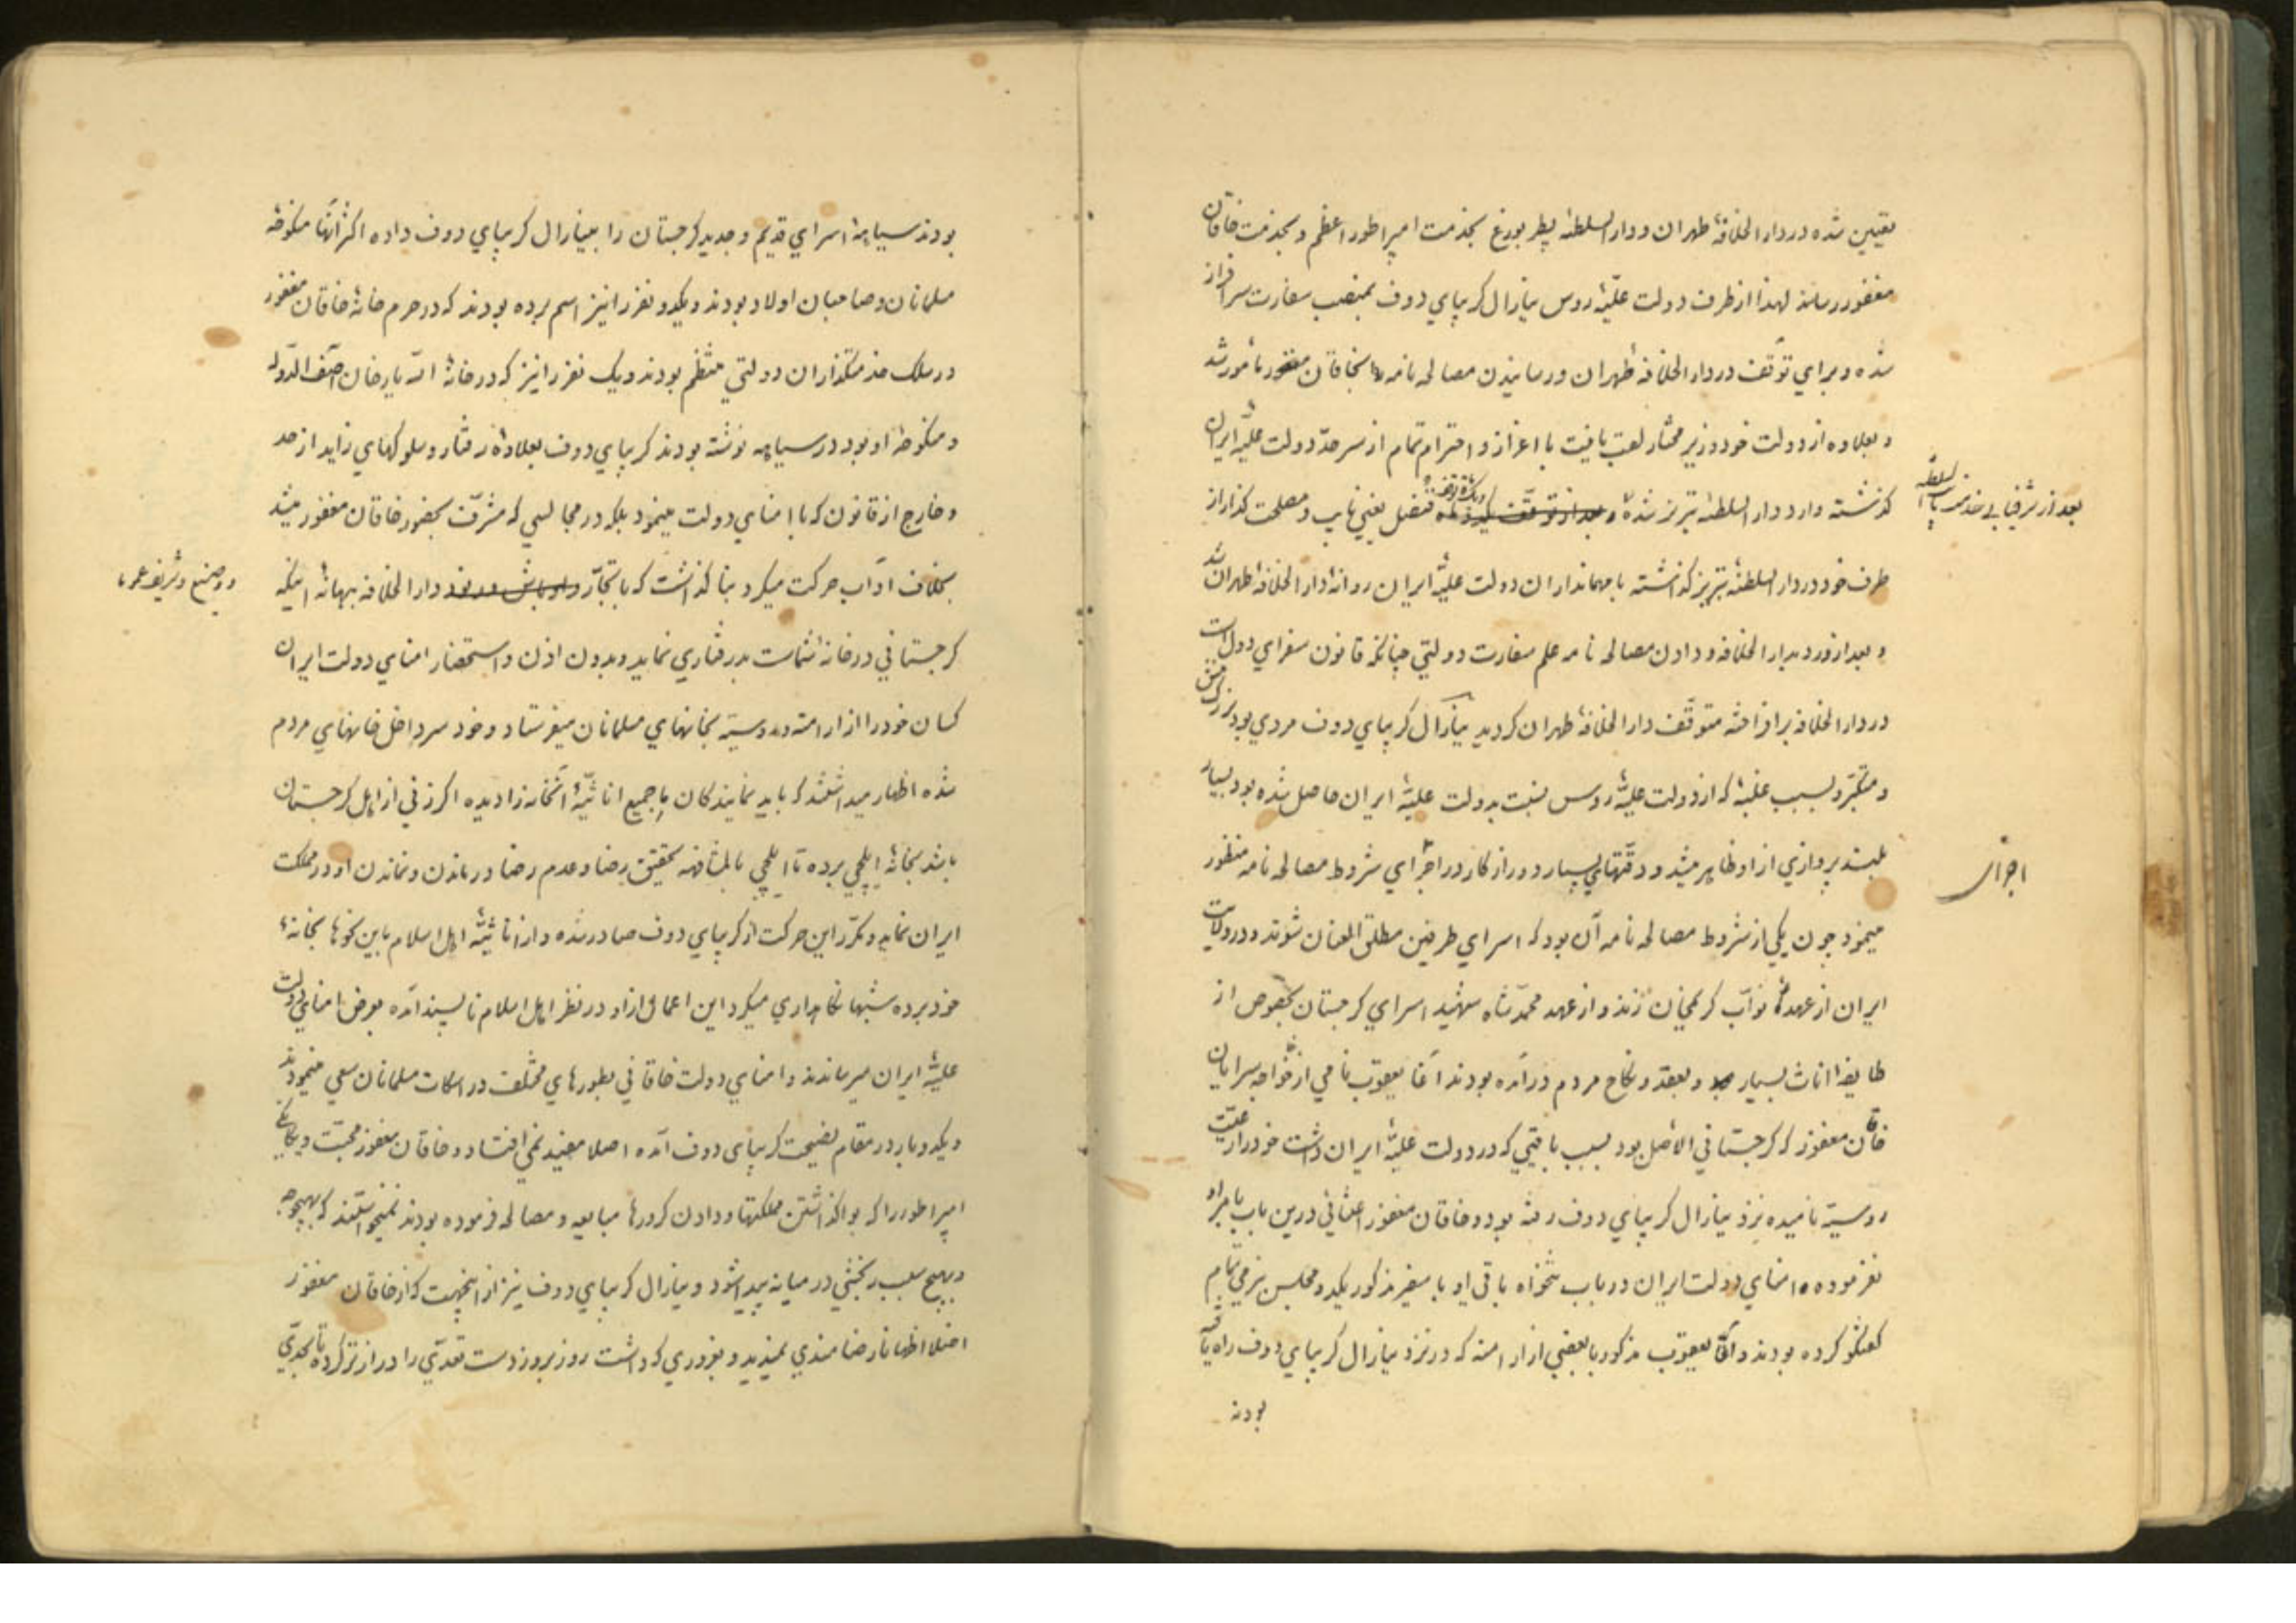 تعیین شده در دار الخلافهٔ طهران و دار السلطنه پطربورغ بخدمت امپراطور اعظم و بخدمت خاقان
مغفور رساند لهذا از طرف دولت علیّهٔ روس ینارال کریبای دوف بمنصب سفارت سرافراز
شده و برای توقّف در دار الخلافه طهران و رسانیدن مصالحه نامه بخاقان مغفور مأمور شد
و بعلاوه از دولت خود وزیر مختار لقب یافت با اعزاز و احترام تمام از سرحدّ دولت علیّه ایران
گذشته وارد دار السلطنه تبریز شده و بعد از توقّف قنصل یعنی نایب و مصلحت گذار از
بعد از شرفیابی خدمت نایب السلطنه
طرف خود در دار السلطنهٔ تبریز گذاشته با مهمانداران دولت علیّهٔ ایران روانهٔ دار الخلافهٔ طهران شد
و بعد از ورود بدار الخلافه و دادن مصالحه نامه علم سفارت دولتی چنانکه قانون سفرای دول است
در دار الخلافه برافراخته متوقّف دار الخلافهٔ طهران گردید ینارال کریبای دوف مردی بود بزرگ منش
و متکبّر و بسبب غلبهٔ که از دولت علیّهٔ روس نسبت بدولت علیّهٔ ایران حاصل شده بود بسیار
بلند پروازی از او ظاهر میشد و دقّتهای بسیار دور از کار در اجرای شروط مصالحه نامه منظور
اجرای
مینمود چون یکی از شروط مصالحه نامه آن بود که اسرای طرفین مطلق العنان شوند و در ولایت
ایران از عهد نوّاب کریمخان زند و از عهد محمّد شاه شهید اسرای کرجستان بخصوص از
طایفه اناث بسیار و بعقد و نکاح مردم درآمده بودند آغا یعقوب نامی از خواجه سرایان
خاقان مغفور که کرجستانی الاصل بود بسبب باقیی که در دولت علیّهٔ ایران داشت خود را رعیّت
روسیّه نامیده نزد ینارال کریبای دوف رفته بود و خاقان مغفور اعتنائی درین باب بامر او
نفرموده امنای دولت ایران در باب تنخواه باقی او با سفیر مذکور یکدو مجلس بنرمی تمام
کفتکو کرده بودند و آقا یعقوب مذکور با بعضی از ارامنه که در نزد ینارال کریبای دوف راه یافته
بودند
بودند سیاههٔ اسرای قدیم و جدید کرجستان را بینارال کریبای دوف داده اکثر آنها منکوحهٔ
مسلمانان و صاحبان اولاد بودند و یکدو نفر را نیز اسم برده بودند که در حرم خانهٔ خاقان مغفور
در سلک خدمتگذاران دولتی منتظم بودند و یک نفر را نیز که در خانهٔ الله یار خان آصف الدّوله
و منکوحهٔ او بود در سیاهه نوشته بودند کریبای دوف بعلاوهٔ رفتار و سلوکهای زاید از حد
و خارج از قانون که با امنای دولت مینمود بلکه در مجالسی که مشرّف بحضور خاقان مغفور میشد
بخلاف آداب حرکت میکرد بنا گذاشت که با تجّار و اوباش دار الخلافه ببهانهٔ اینکه
و وضیع و شریف
کرجستانی در خانهٔ شماست بدرفتاری نماید و بدون اذن و استحضار امنای دولت ایران
کسان خود را از ارامنه و روسیّه بخانهای مسلمانان میفرستاد و خود سر داخل خانهای مردم
شده اظهار میداشتند که باید نمایندکان با جمیع اناثیّهٔ آنخانه را دیده اکر زنی از اهل کرجستان
باشد بخانهٔ ایلچی برده تا ایلچی بالمشافهه تحقیق رضا و عدم رضا در ماندن و نماندن او در مملکت
ایران نماید و مکرّر این حرکت از کریبای دوف صادر شده و از اناثیّهٔ اهل اسلام باین نحوها بخانهٔ
خود برده شبها نکاهداری میکرد این اعمال از او در نظر اهل اسلام ناپسند آمده بعرض امنای دولت
علیّهٔ ایران میرساندند و امنای دولت خاقانی بطورهای مختلف در اسکات مسلمانان سعی مینمودند
و یکدو بار در مقام نصیحت کریبای دوف آمده اصلا مفید نمی افتاد و خاقان مغفور محبّت و یکانگی
امپراطور را که بواگذاشتن مملکتها و دادن کرورها مبایعه و مصالحه فرموده بودند نمیخواستند که بهیچوجه
و بهیچ سبب رنجشی در میانه پیدا شود و ینارال کریبای دوف نیز از اینجهت که از خاقان مغفور
اصلا اظهار نارضامندی نمیدید و بغروری که داشت روز بروز دست تعدّی را درازتر کرده تا بحدّی